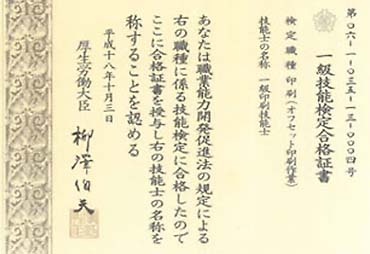 第〇六-一-〇三五-一三-〇〇〇四号
一級技能検定合格証書
検定職種 印刷(オフセット印刷作業)
技能士の名称 一級印刷技能士
あなたは職業能力開発促進法の規定による
右の職種に係る技能検定に合格したので
ここに合格証書を授与し右の技能士の名称を
称することを認める
平成十八年十月三日
厚生労働大臣 柳澤伯夫